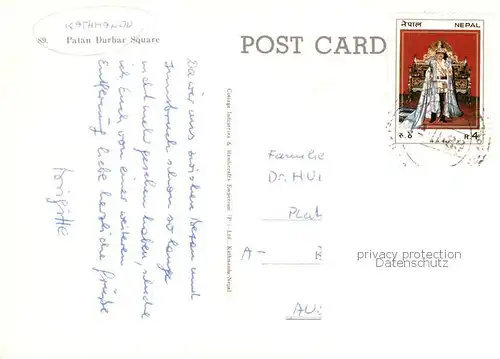 KATHMANDU
89. Patan Durbar Square
POST CARD
नेपाल NEPAL
रु. ४ R 4
Cottage Industries & Handicrafts Emporium (P) Ltd., Kathmandu/Nepal
Da wir uns zwischen Bozen und
Innsbruck schon so lange
nicht mehr gesehen haben, schicke
ich Euch von einer weiteren
Entfernung liebe herzliche Grüße
Brigitte
Familie
Dr. HU
Plat
A-
AU
privacy protection
Datenschutz